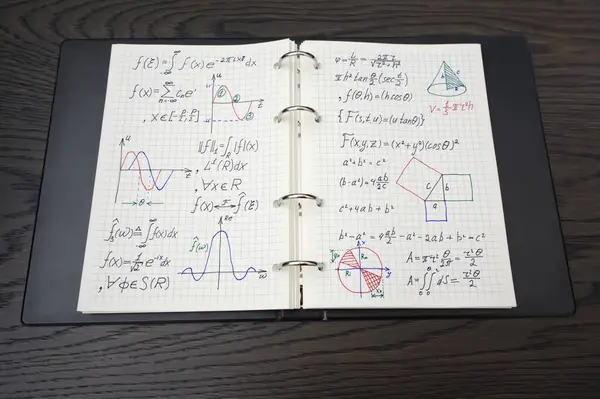 f(ξ)=∫f(x)e^-2πixξ dx
f(x)=Σ c_n e^i
n=-∞
, x∈[-
u
1
2
3
t
u
t
θ
‖f‖₁=∫_R |f|(x)
, L¹(R)dx
, ∀x∈R
f(x) ⇌ f̂(ξ)
f̂_s(ω)≜∫f(x)dx
-∞
f(x)= e^-ix dx
, ∀ϕ∈S(R)
Re
f̂(ω)
ω
φ=L/R=2πr/√(r²+h²)
πh² tan θ/2 (sec θ/2)
, f(θ,h)=(h cosθ)
{F(s,t,u)=(u tanθ)}
V=1/3 πr²h
F(x,y,z)=(x²+y²)(cosθ)²
a²+b²=c²
(b-a²)=4 ab/2c
c²+4ab+b²
c
b
a
b²-a²=4 ab/2 -a²-2ab+b²=c²
A=πr² θ/2π = r²θ/2
A=∫∫dS= r²θ/2
x
y